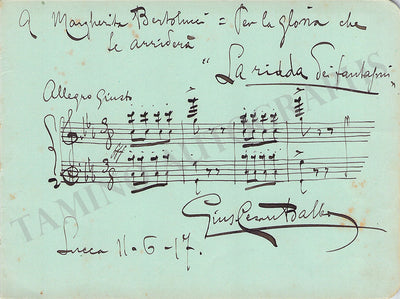 A Margherita Bertolucci = Per la gloria che
le arriderà
"La ridda dei fantasmi"
Allegro Giusto
ff
Gius Cesare Balbo
Lucca 11-6-17.
TAMINO AUTOGRAPHS